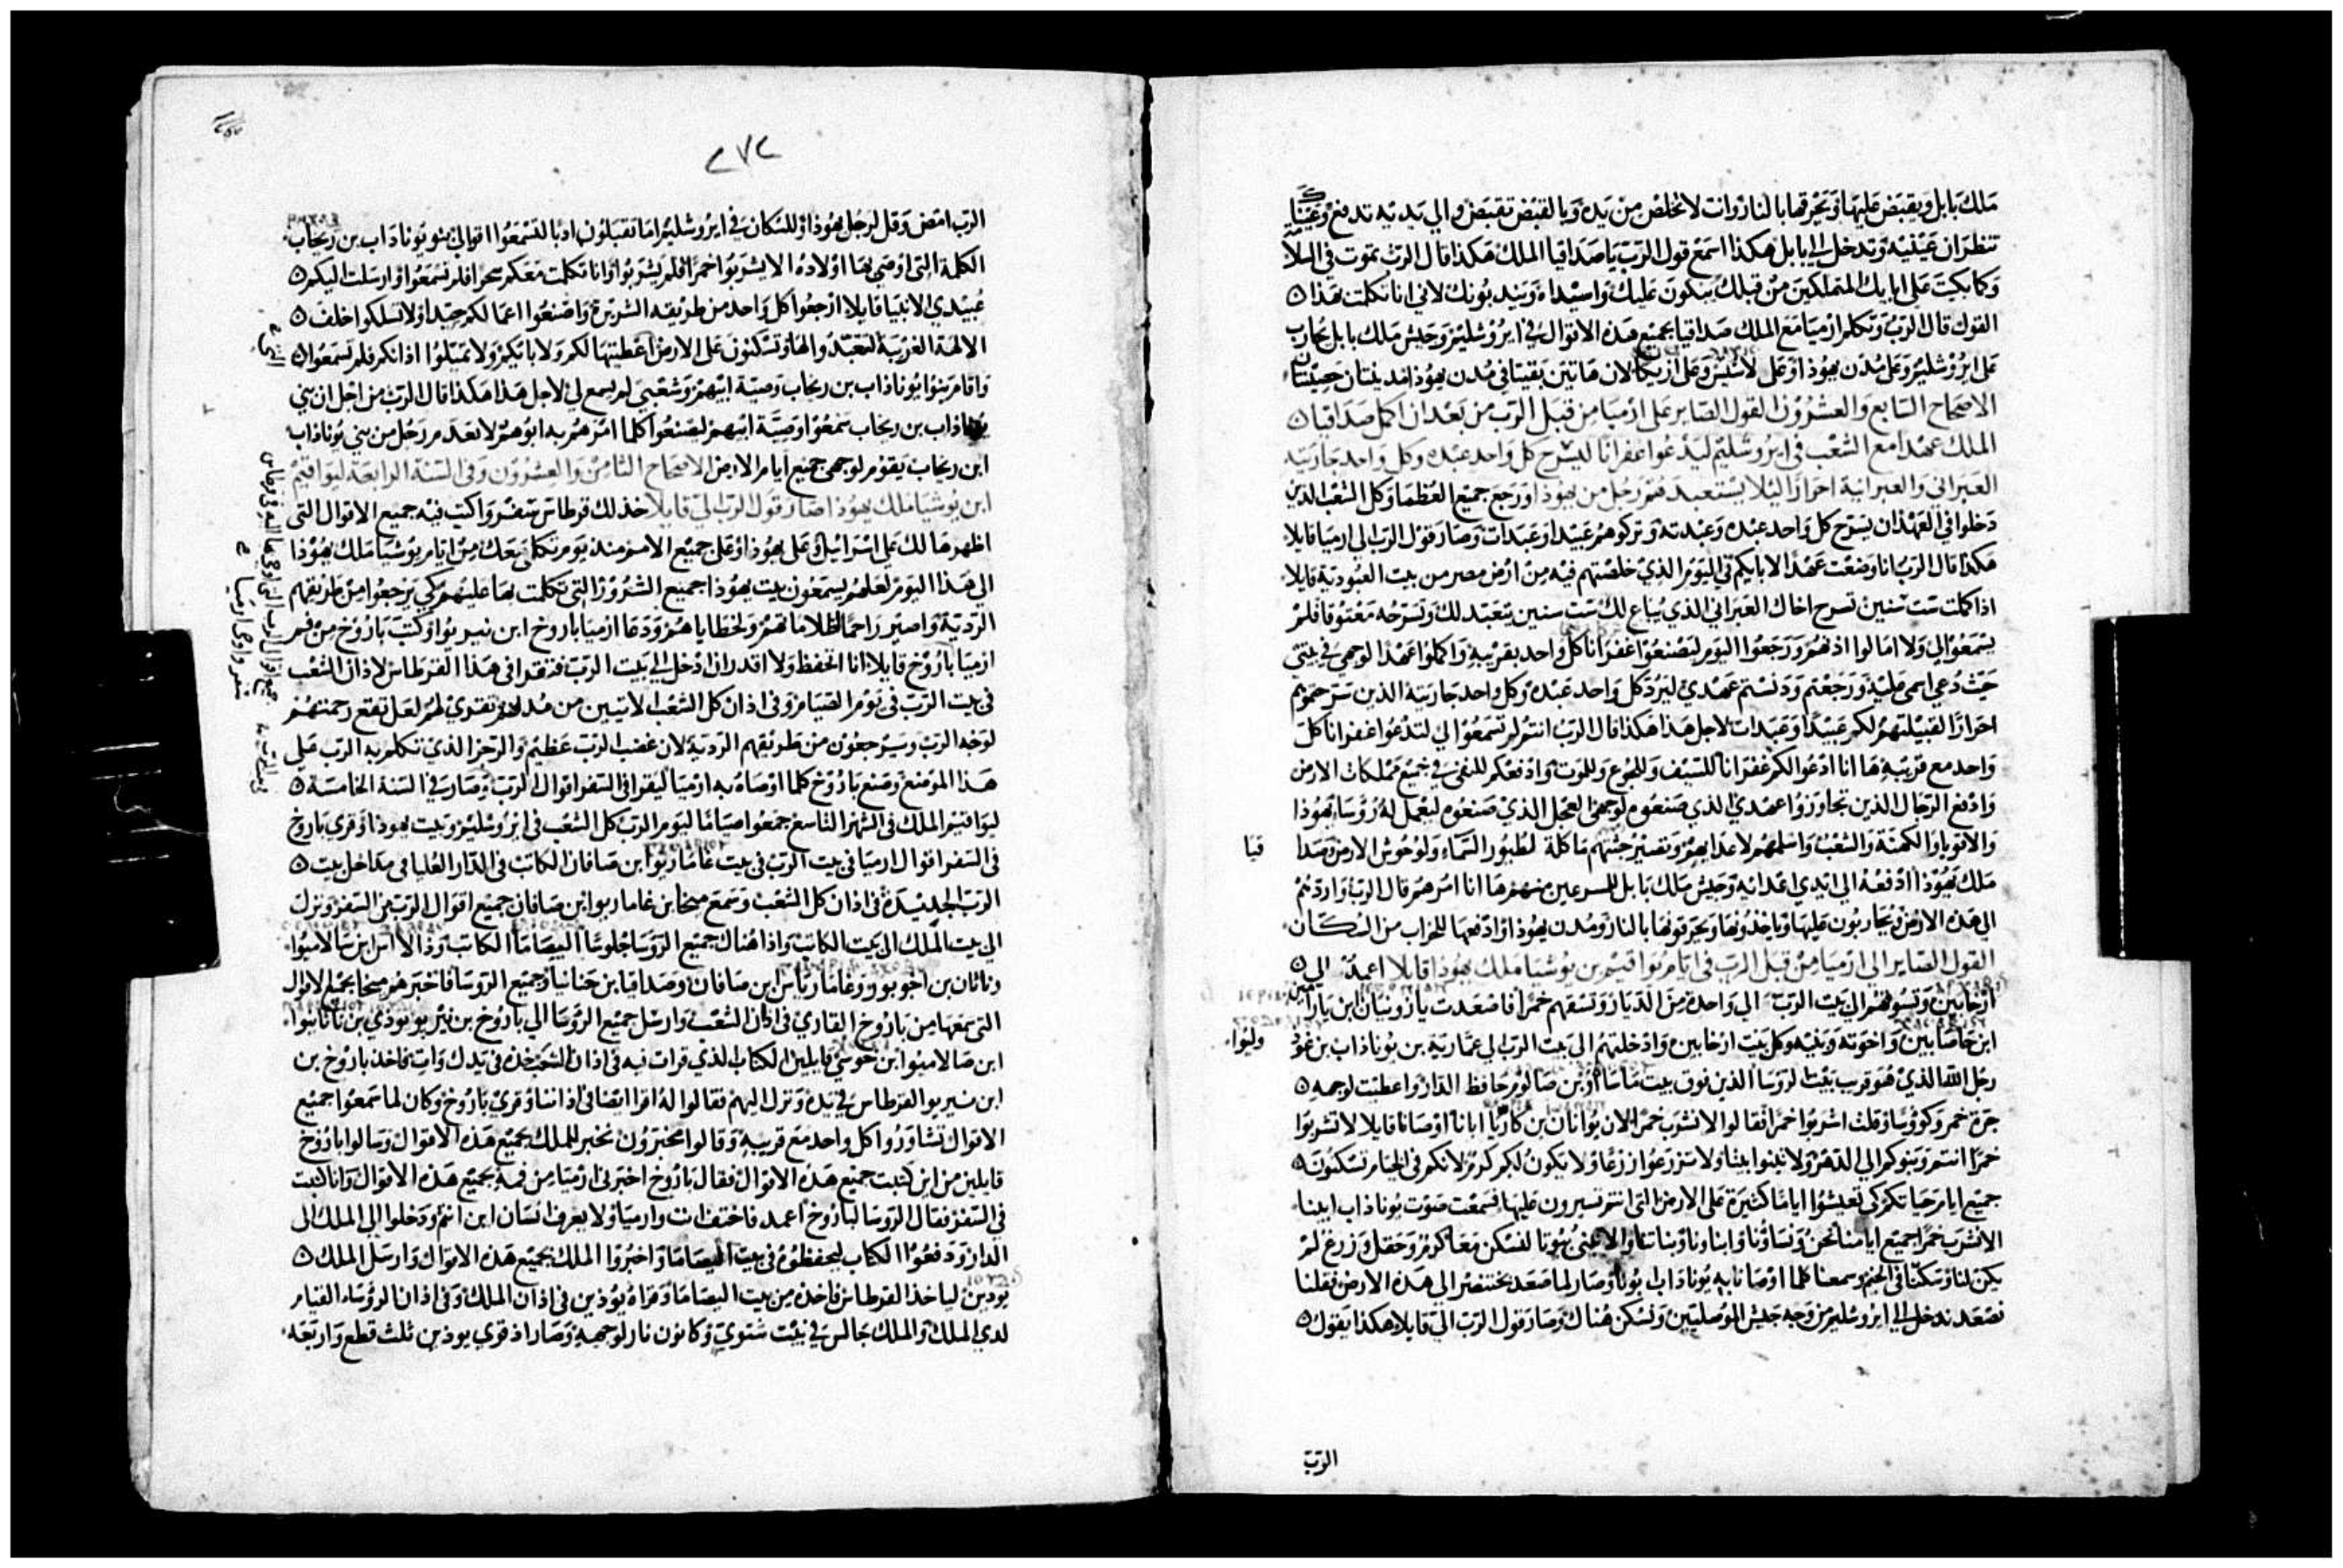 ملك بابل ويقبض عليها ويحرقها بالنار وانت لا تخلص من يده وبالقبض تقبض والي يديه تدفع وعيناك
تنظران عينيه وتدخل الي بابل هكذا اسمع قول الرب يا صداقيا الملك هكذا قال الرب تموت في السلامه
وكما بكيت علي ابايك المتملكين من قبلك يبكون عليك واسيداه ويندبونك لاني انا تكلمت هذا
القول قال الرب وتكلم ارميا مع الملك صداقيا بجميع هذه الاقوال في ايروشليم وجيش ملك بابل يحارب
علي ايروشليم وعلي مدن يهوذا وعلي لاشيس وعلي ازيكا لان هاتين بقيتا في مدن يهوذا مدينتان حصينتان
الاصحاح السابع والعشرون القول الصاير علي ارميا من قبل الرب من بعد ان اكمل صداقيا
الملك عهدا مع الشعب في ايروشليم ليدعوا غفرانا ليسرح كل واحد عبده وكل واحد جاريته
العبراني والعبرانية احرارا ليلا يستعبد منهم رجل من يهوذا ورجع جميع العظما وكل الشعب الذين
دخلوا في العهد ان يسرح كل واحد عبده وعبدته وتركوهم عبيدا وعبدات وصار قول الرب الي ارميا قايلا
هكذا قال الرب انا وضعت عهدا لابايكم في اليوم الذي خلصتهم فيه من ارض مصر من بيت العبودية قايلا
اذا كملت ست سنين تسرح اخاك العبراني الذي يباع لك ست سنين يتعبد لك وتسرحه معتوقا فلم
يسمعوا لي ولا امالوا اذنهم ورجعوا اليوم ليصنعوا غفرانا كل واحد بقريبه واكملوا عهدا لوجهي في بيتي
حيث دعي اسمي عليه ورجعتم ودنستم عهدي ليرد كل واحد عبده وكل واحد جاريته الذين سرحتموهم
احرارا لقبيلتهم لكم عبيدا وعبدات لاجل هذا هكذا قال الرب انتم لم تسمعوا لي لتدعوا غفرانا كل
واحد مع قريبه ها انا ادعوا لكم غفرانا للسيف وللجوع وللموت وادفعكم للنفي في جميع مملكات الارض
وادفع الرجال الذين تجاوزوا عهدي الذي صنعوه لوجهي العجل الذي صنعوه ليعمل له روسا يهوذا
والاقويا والكهنة والشعب واسلمهم لاعدايهم وتصير جثتهم ماكلة لطيور السماء ولوحوش الارض وصدا
قيا
ملك يهوذا ادفعه الي ايدي اعدائه وجيش ملك بابل المسرعين منهم ها انا امرهم قال الرب واردهم
الي هذه الارض ويحاربون عليها وياخذونها ويحرقونها بالنار ومدن يهوذا وادفعها للخراب من السكان
القول الصاير الي ارميا من قبل الرب في ايام يواقيم بن يوشيا ملك يهوذا قايلا اعبد الي
ارخابين وتسوقهم الي بيت الرب الي واحده من الديار وتسقهم خمرا فاصعدت يازونيان ابن يارا
ابن خاصابين واخوته وبنيه وكل بيت ارخابين وادخلتهم الي بيت الرب الي عمارية بن يوناذاب بن غود
وليوا
رجل الله الذي هو قريب بيت الروسا الذين فوق بيت ماساا وبن صالوم حافظ الدار واعطيت لوجهه
جرة خمر وكووسا وقلت اشربوا خمرا فقالوا لا نشرب خمرا لان يوناذان بن كاريا ابانا اوصانا قايلا لا تشربوا
خمرا انتم وبنوكم الي الدهر ولا تبنوا بيتا ولا تزرعوا زرعا ولا يكون لكم كرم لانكم في الخيام تسكنون
جميع ايام حياتكم كي تعيشوا اياما كثيرة علي الارض التي انتم تسيرون عليها فسمعت صوت يوناذاب ابينا
الا نشرب خمرا جميع ايامنا نحن ونساونا وابناونا وبناتنا والا نبني بيوتا لنسكن معا كرم وحقل وزرع لم
يكن لنا وسكنا في الخيم وسمعنا كلما اوصانا به يوناذاب ابونا وصار لما صعد بختنصر الي هذه الارض فقلنا
نصعد ندخل الي ايروشليم من وجه جيش الموصليين ونسكن هناك وصار قول الرب الي قايلا هكذا يقول
الرب
٢٧٢
الرب امض وقل لرجل يهوذا وللسكان في ايروشليم اما تقبلون ادبا لتسمعوا اقوالي بنو يوناداب بن ريحاب
الكلمة التي اوصي بها اولاده الا يشربوا خمرا فلم يشربوا وانا تكلمت معكم سحرا فلم تسمعوا وارسلت اليكم
عبيدي الانبيا قايلا ارجعوا كل واحد من طريقه الشريرة واصنعوا اعمالكم جيدا ولا تسلكوا خلف
الالهة الغريبة لتعبدوا لها وتسكنون علي الارض اعطيتها لكم ولابايكم ولا تميلوا اذانكم فلم تسمعوا
واقام بنوا يوناذاب بن ريخاب وصية ابيهم وشعبي لم يسمع لي لاجل هذا هكذا قال الرب من اجل ان بني
يوناذاب بن ريخاب سمعوا وصية ابيهم لصنعوا كلما امرهم به ابوهم لا يعدم رجل من بني يوناذاب
ابن ريخاب يقوم لوجهي جميع ايام الارض الاصحاح الثامن والعشرون وفي السنة الرابعة ليواقيم
ابن يوشيا ملك يهوذا صار قول الرب الي قايلا خذ لك قرطاس سفر واكتب فيه جميع الاقوال التي
اظهرها لك علي اسرائيل وعلي يهوذا وعلي جميع الامم منذ يوم تكلمي معك من ايام يوشيا ملك يهوذا
الي هذا اليوم لعلهم يسمعون بيت يهوذا جميع الشرور التي تكلمت بها عليهم كي يرجعوا من طريقهم
الردية واصير راحما لظلاماتهم ولخطاياهم ودعا ارميا باروخ ابن نيريوا وكتب باروخ من فم
ارميا باروخ قايلا انا اتحفظ ولا اقدر ان ادخل الي بيت الرب فتقرا في هذا القرطاس لاذان الشعب
في بيت الرب في يوم الصيام وفي اذان كل الشعب الاتيين من مدنهم تقري لهم لعل تقع رحمتهم
لوجه الرب وسيرجعون من طريقهم الردية لان غضب الرب عظيم والرجز الذي تكلم به الرب علي
هذا الموضع وصنع باروخ كلما اوصاه به ارميا ليقرا في السفر اقوال الرب وصار في السنة الخامسة
ليواقيم الملك في الشهر التاسع جمعوا صياما ليوم الرب كل الشعب في ايروشليم وبيت يهوذا وقري باروخ
في السفر اقوال ارميا في بيت الرب في بيت غاماريوا ابن صافان الكاتب في الدار العليا في مداخل بيت
الرب الجديدة في اذان كل الشعب وسمع ميخا بن غاماريوا ابن صافان جميع اقوال الرب من السفر ونزل
الي بيت الملك الي بيت الكاتب واذا هناك جميع الروسا جلوسا اليصاما الكاتب وذالااس ابن سالاميوا
وناثان بن اجوبور وغاماريااس ابن صافان وصداقيا بن حنانيا وجميع الروسا فاخبرهم ميخا بجميع الاقوال
التي سمعها من باروخ القاري في اذان الشعب وارسل جميع الروسا الي باروخ بن نيريو يوذي بن ناثانيوا
ابن صالاميوا ابن خوسي قايلين الكتاب الذي قرات فيه في اذان الشعب خذه في يدك وات فاخذ باروخ بن
ابن نيريوا القرطاس في يده ونزل اليهم فقالوا له اقرا ايضا في اذاننا وقري باروخ وكان لما سمعوا جميع
الاقوال تشاوروا كل واحد مع قريبه وقالوا مخبرون نخبر للملك بجميع هذه الاقوال وسالوا باروخ
قايلين من اين كتبت جميع هذه الاقوال فقال باروخ اخبرني ارميا من فمه بجميع هذه الاقوال وانا كتبت
في السفر فقال الروسا لباروخ اعمد فاختف انت وارميا ولا يعرف انسان اين انتم ودخلوا الي الملك الي
الدار ودفعوا الكتاب ليحفظوه في بيت اليصاما واخبروا الملك بجميع هذه الاقوال وارسل الملك
يوذين لياخذ القرطاس فاخذه من بيت اليصاما وقراه يوذين في اذان الملك وفي اذان الروساء القيام
لدي الملك والملك جالس في بيت شتوي وكانون نار لوجهه وصار اذ قري يوذين ثلث قطع واربعه